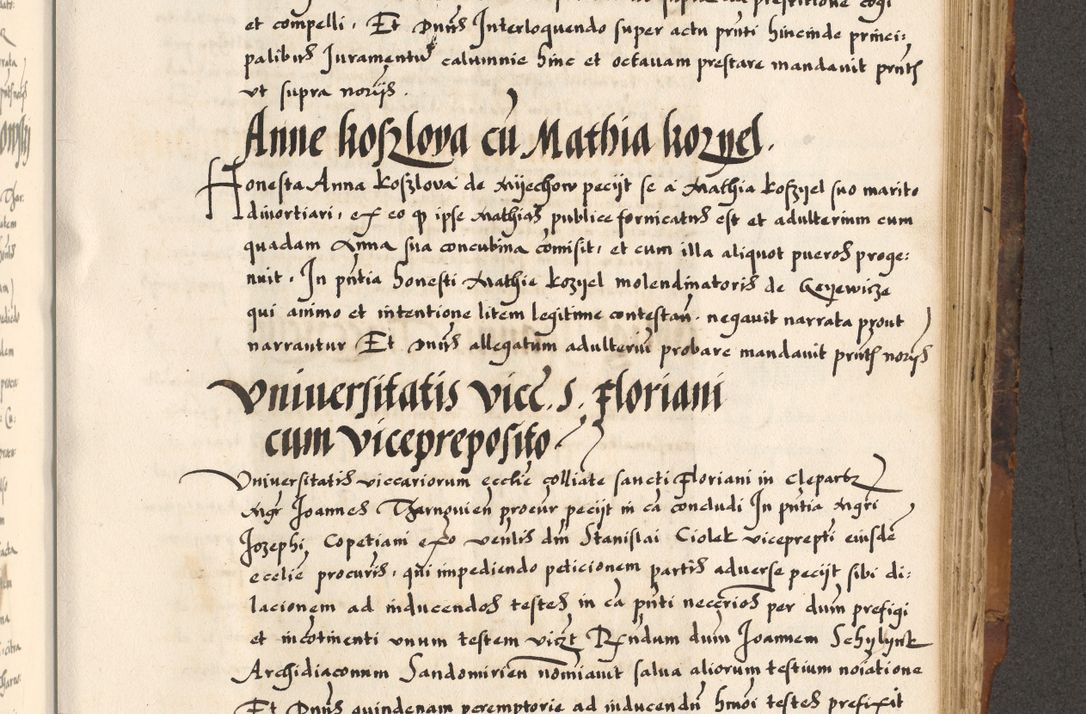 et compelli. Et Dnus Interloquendo super actu pnti hincinde princi:
palibus Juramentu calumnie hinc et octauam prestare mandauit pntib
vt supra norijs.
Anne koszlova cu Mathia kozyel.
Honesta Anna koszlova de Myechow pecijt se a Mathia koszyel suo marito
diuortiari, ex eo q ipse Mathias publice fornicatus est et adulterium cum
quadam Anna sua concubina comisit, et cum illa aliquot pueros proge:
nuit. In pntia honesti Mathie kozyel molendinatoris de
qui animo et intentione litem legitime contestan. negauit narrata prout
narrantur Et Dnus allegatum adulteriu probare mandauit pntib norijs
Vniuersitatis vicc. S. Floriani
cum vicepreposito
Vniuersitatis viccariorum ecclie colliate sancti Floriani in Clepartz
Mgr Joannes Tharnouien procur pecijt in ca concludi In pntia Mgri
Jozephi Copetiani ex o venlis dni Stanislai Ciolek viceprepti eiusde
ecclie procuris, qui impediendo peticionem partis aduerse pecijt sibi di:
lacionem ad inducendos testes in ca pnti neccrios per dnm prefigi
et incotinenti vnum testem viczt Rndum dnm Joannem Schylynk
Archidiaconum Sandomirien nomiauit salua aliorum testium noiatione
Et Dnus quindenam peremptorie ad inducendu hmoi testes prefixit